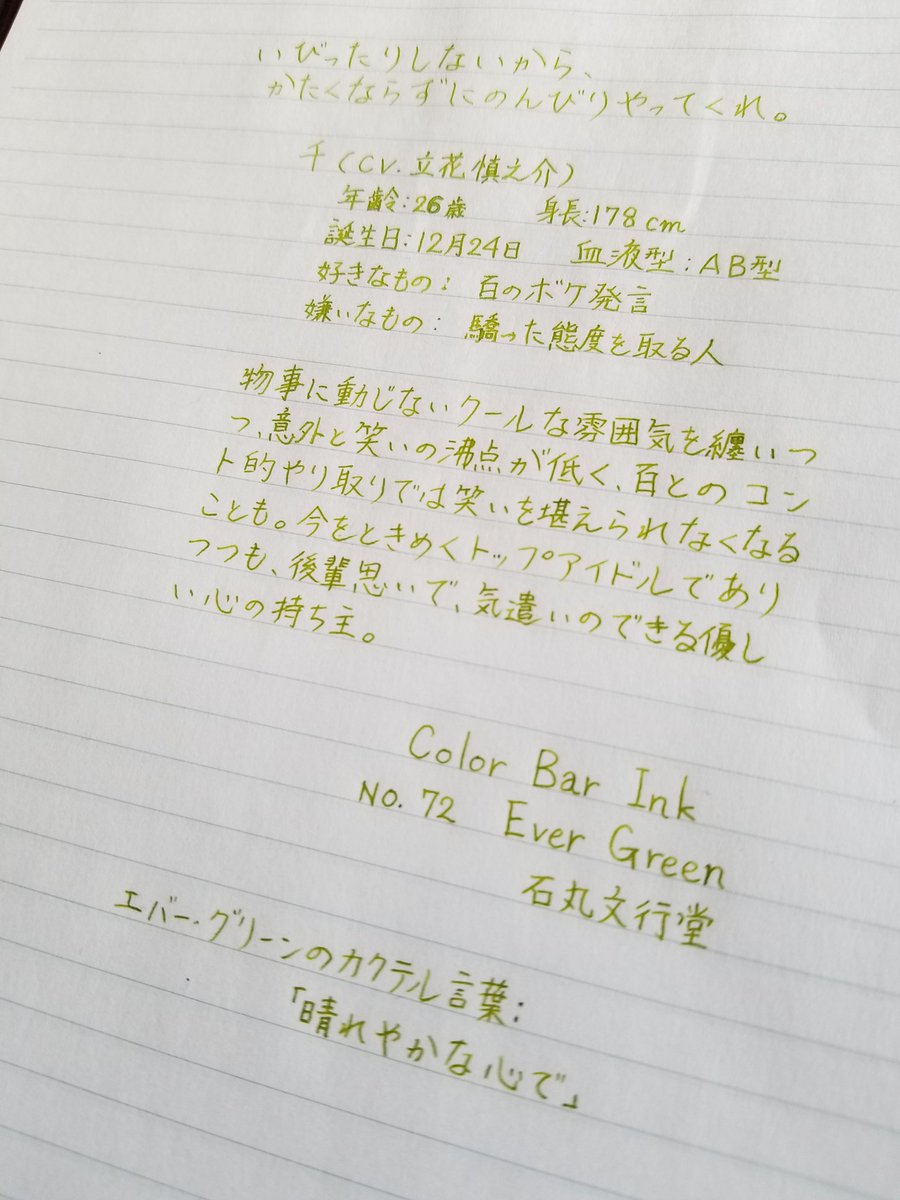 いびったりしないから、
かたくならずにのんびりやってくれ。
千(CV.立花慎之介)
年齢:26歳 身長:178cm
誕生日:12月24日 血液型:AB型
好きなもの: 百のボケ発言
嫌いなもの: 驕った態度を取る人
物事に動じないクールな雰囲気を纏いつ
つ、意外と笑いの沸点が低く、百とのコン
ト的やり取りでは笑いを堪えられなくなる
ことも。今をときめくトップアイドルであり
つつも、後輩思いで、気遣いのできる優し
い心の持ち主。
Color Bar Ink
No. 72 Ever Green
石丸文行堂
エバー・グリーンのカクテル言葉:
「晴れやかな心で」